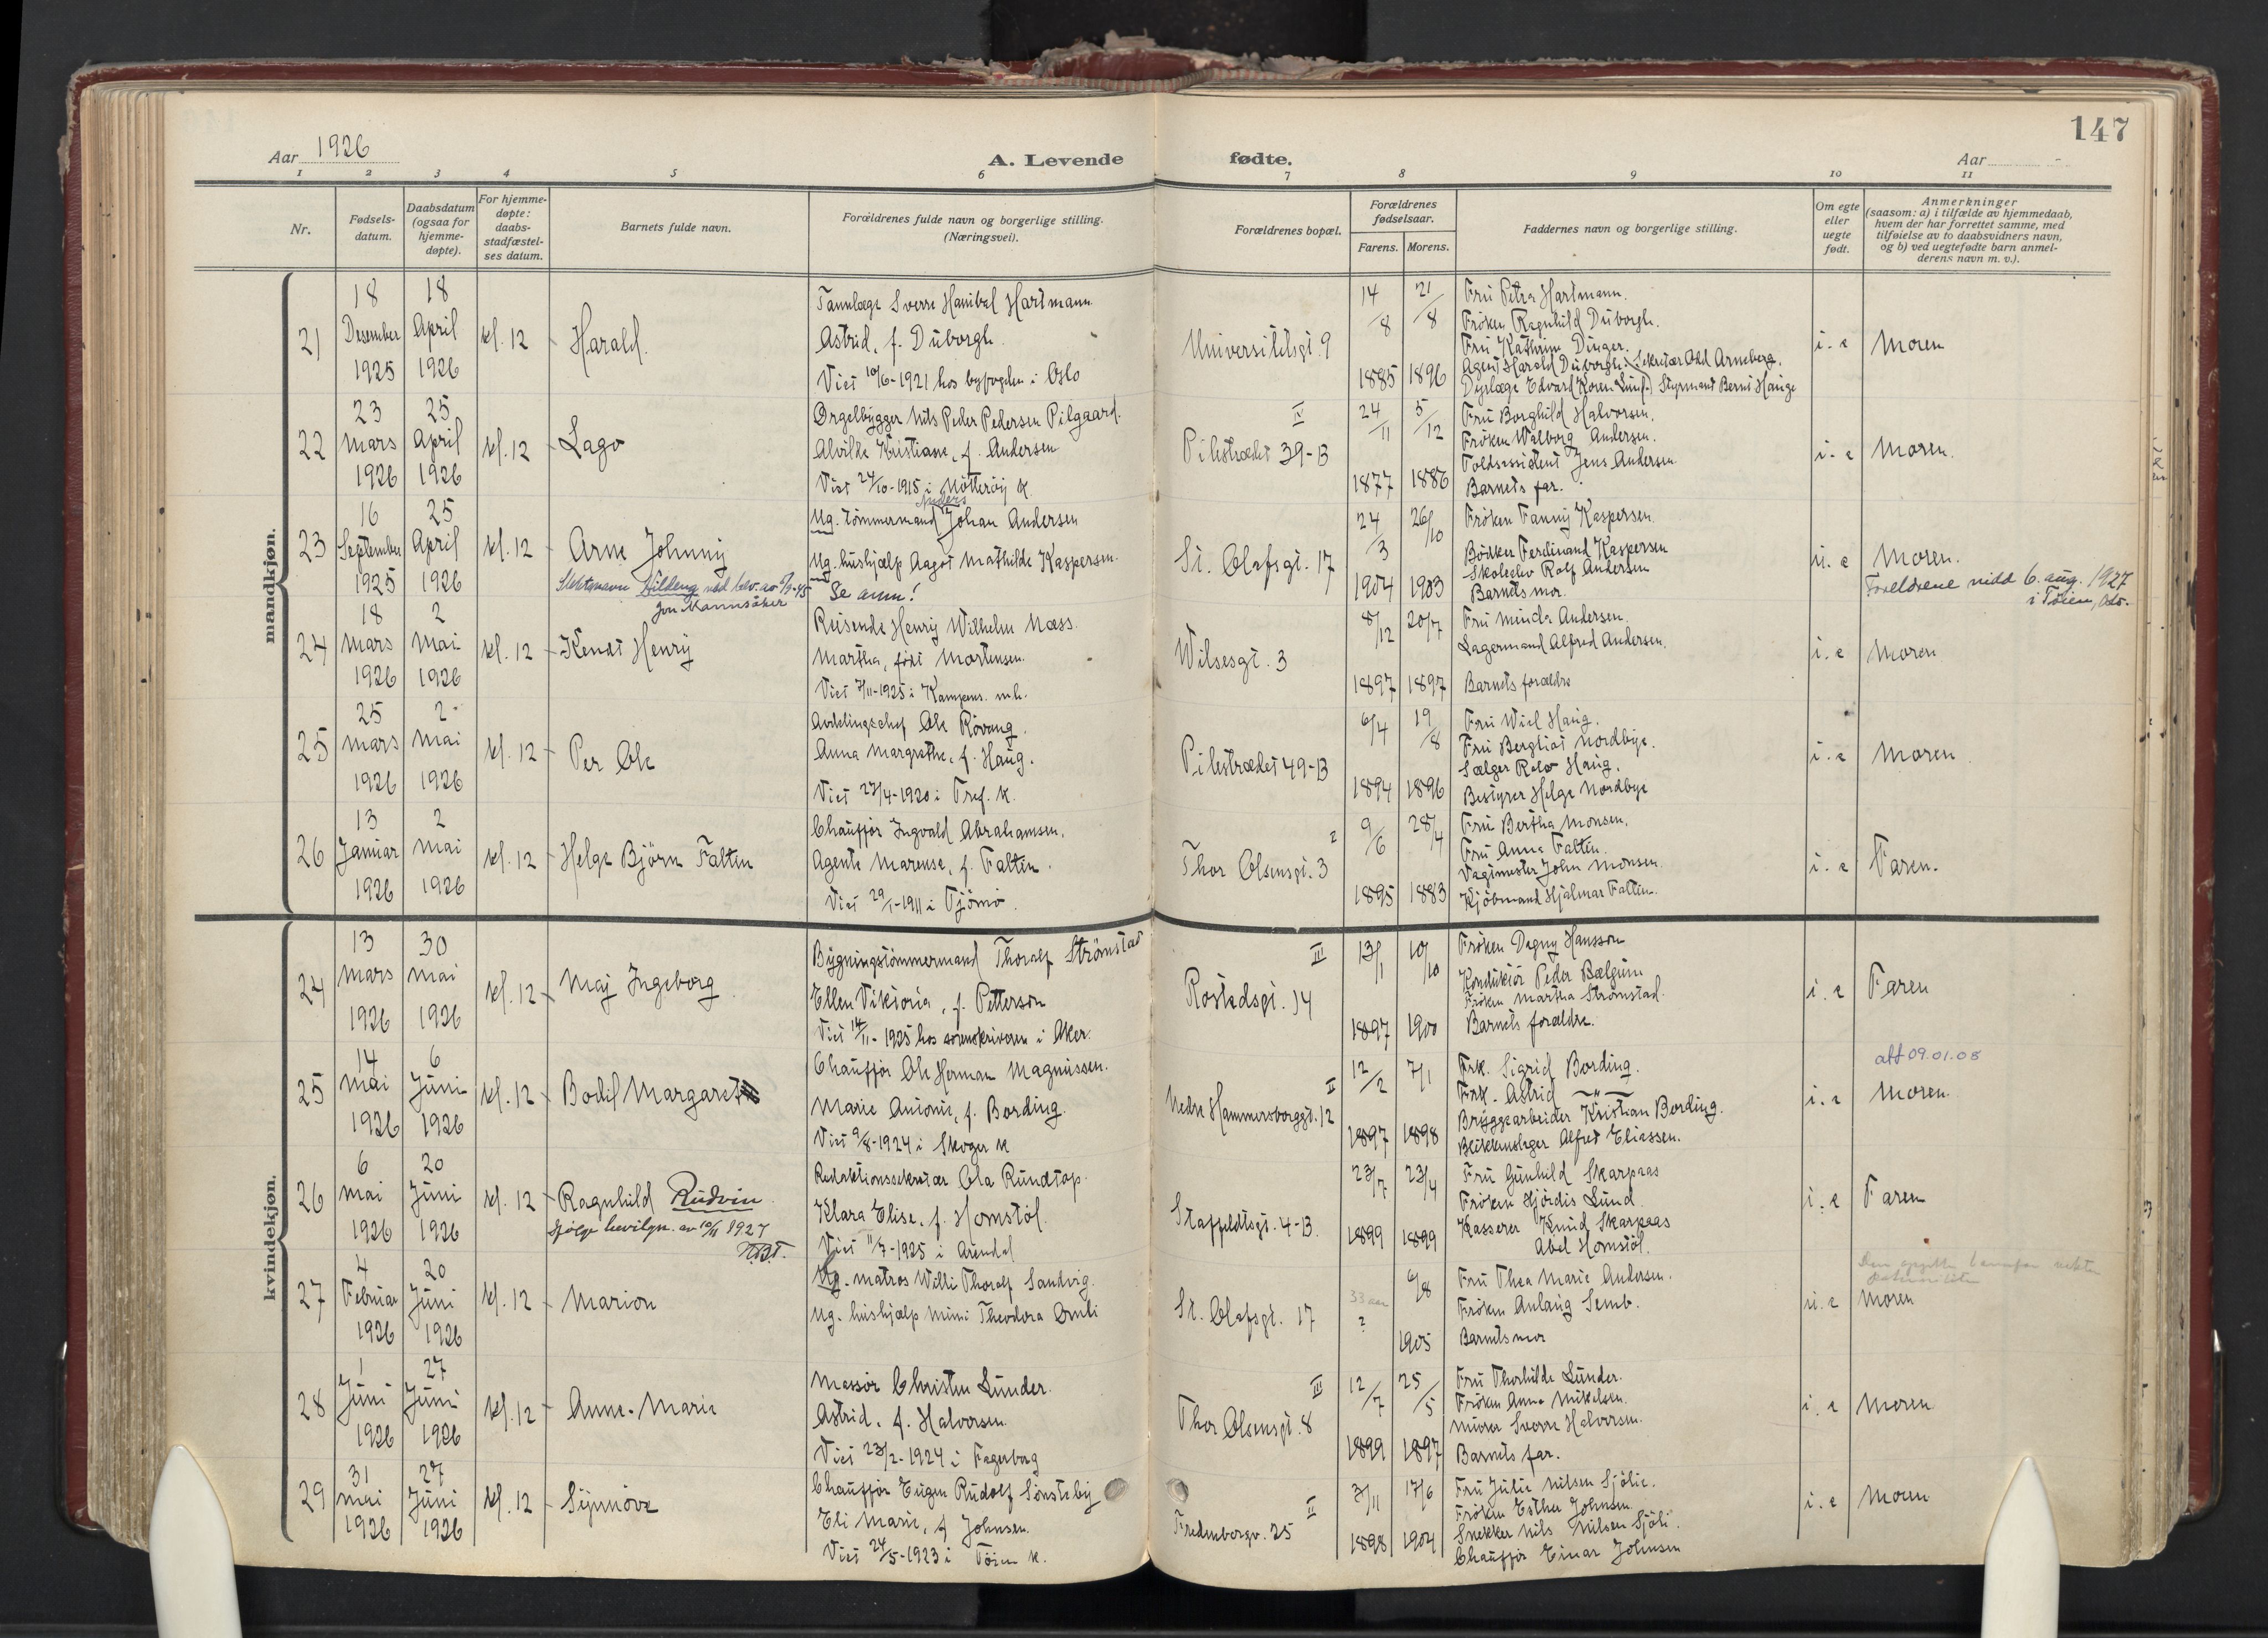 147
Aar 1926
A. Levende fødte.
Aar
1 2 3 4 5 6 7 8 9 10 11
Nr.
Fødsels-
datum.
Daabsdatum
(ogsaa for
hjemme-
døpte).
For hjemme-
døpte:
daabs-
stadfæstel-
ses datum.
Barnets fulde navn.
Forældrenes fulde navn og borgerlige stilling.
(Næringsvei).
Forældrenes bopæl.
Forældrenes
fødselsaar.
Farens. Morens.
Faddernes navn og borgerlige stilling.
Om egte
eller
uegte
født.
Anmerkninger
(saasom: a) i tilfælde av hjemmedaab,
hvem der har forrettet samme, med
tilføielse av to daabsvidners navn,
og b) ved uegtefødte barn anmel-
derens navn m. v.).
mandkjøn.
21
18
Desember
1925
18
April
1926
kl. 12
Harald.
Tannlæge Sverre Hanibal Hartmann
Astrid, f. Duborgh
Viet 10/6-1921 hos byfogden i Oslo
Universitetsgt. 9
14/8
1885
21/8
1896
Fru Petra Hartmann.
Frøken Ragnhild Duborgh.
Fru Kathrine Dinger.
Agent Harald Duborgh. Sekretær Odd Arneberg.
Dyrlæge Edvard Koren Lund. Styrmand Bernt Hauge
i. e
Moren
22
23
Mars
1926
25
April
1926
kl. 12
Lago
Orgelbygger Nils Peder Pedersen Pilgaard.
Alvilde Kristiane, f. Andersen
Viet 24/10-1915 i Nøtterøy k.
IV
Pilestrædet 39-B
24/11
1877
5/12
1886
Fru Borghild Halvorsen.
Frøken Walborg Andersen.
Toldassistent Jens Andersen.
Barnets far.
i. e
Moren.
23
16
September
1925
25
April
1926
kl. 12
Arne Johnny
Slektsnavn Lildeng ved bev. av
Jon Mannsåker
Anders
Ug. tømmermand Johan Andersen
Ug. hushjælp Aagot Mathilde Kaspersen.
Se anm!
St. Olafsgt. 17
24/3
1904
26/10
1903
Frøken Fanny Kaspersen.
Bødker Ferdinand Kaspersen
Skoleelev Rolf Andersen
Barnets mor.
u. e
Moren.
Foreldrene vidd 6. aug. 1927
i Tøien, Oslo.
24
18
Mars
1926
2
Mai
1926
kl. 12
Kent Henry
Reisende Henry Wilhelm Næss.
Martha, født Mortensen.
Viet 7/11-1925 i Kampens. mh.
Wilsesgt. 3
8/12
1897
20/7
1897
Fru Minda Andersen.
Lagermand Alfred Andersen.
Barnets forældre
i. e
Moren
25
25
Mars
1926
2
Mai
1926
kl. 12
Per Ole
Avdelingschef Ole Røvang.
Anna Margrethe, f. Haug.
Viet 27/4-1920 i Tref. k.
Pilestrædet 49-B
6/4
1894
19/8
1896
Fru Wiel Haug.
Fru Bergliot Nordbye.
Sælger Rolv Haug.
Bestyrer Helge Nordbye
i. e
Moren
26
13
Januar
1926
2
Mai
1926
kl. 12
Helge Bjørn Faltin
Chauffør Ingvald Abrahamsen.
Agente Marense, f. Faltin.
Viet 29/1-1911 i Tjømø.
Thor Olsensgt. 3
9/6
1895
28/4
1883
Fru Bertha Monsen.
Fru Anna Faltin.
Vagtmester John Monsen.
Kjøbmand Hjalmar Faltin.
i. e
Faren.
kvindekjøn.
24
13
Mars
1926
30
Mai
1926
kl. 12
Maj Ingeborg
Bygningstømmermand Thoralf Strømstad
Ellen Viktoria, f. Petterson
Viet 14/11-1925 hos sorenskriveren i Aker.
III
Rostedsgt. 14
13/1
1897
10/10
1900
Frøken Dagny Hansson
Konduktør Peder Bælgum
Frøken Martha Strømstad.
Barnets forældre.
i. e
Faren
25
14
Mai
1926
6
Juni
1926
kl. 12
Bodil Margaret
Chauffør Ole Herman Magnussen.
Marie Antonie, f. Bording.
Viet 9/8-1924 i Skoger k
II
Nedre Hammersborggt. 12
12/2
1897
7/1
1898
Frk. Sigrid Bording.
Frk. Astrid —"—
Bryggearbeider Kristian Bording.
Blikkenslager Alfred Eliassen.
i. e
att 09.01.08
Moren
26
6
Mai
1926
20
Juni
1926
kl. 12
Ragnhild Rudvin
ifølge bevilgn. av 10/11 1927
Redaktionssekretær Ola Rundtop.
Klara Elise, f. Homstøl.
Viet 11/7-1925 i Arendal
Staffeldtsgt. 4-B.
23/7
1899
23/4
1899
Fru Gunhild Skarpaas
Frøken Hjørdis Lund.
Kasserer Knud Skarpaas
Abel Homstøl.
i. e
Faren
27
4
Februar
1926
20
Juni
1926
kl. 12
Marion
Ug. matros Willi Thoralf Sandvig.
Ug. hushjælp Mimi Theodora Omli
St. Olafsgt. 17
33 aar
?
6/8
1905
Fru Thea Marie Andersen.
Frøken Anlaug Semb.
Barnets mor
u. e
Den opgitte barnefar nekter
paterniteten
Moren
28
1
Juni
1926
27
Juni
1926
kl. 12
Anne-Marie
Massør Christen Lunder.
Astrid, f. Halvorsen.
Viet 23/2-1924 i Fagerborg
III
Thor Olsensgt. 8
12/7
1899
25/5
1897
Fru Thorhilde Lunder.
Frøken Anna Mikelsen.
Murer Sverre Halvorsen.
Barnets far.
i. e
Moren
29
31
Mai
1926
27
Juni
1926
kl. 12
Synnøve
Chauffør Eugen Rudolf Sønsteby
Eli Marie, f. Johnsen.
Viet 24/5-1923 i Tøien k.
II
Fredenborgv. 25
3/11
1898
17/6
1904
Fru Julie Nilsen Sjølie.
Frøken Esther Johnsen.
Snekker Nils Nilsen Sjøli.
Chauffør Einar Johnsen
i. e
Moren